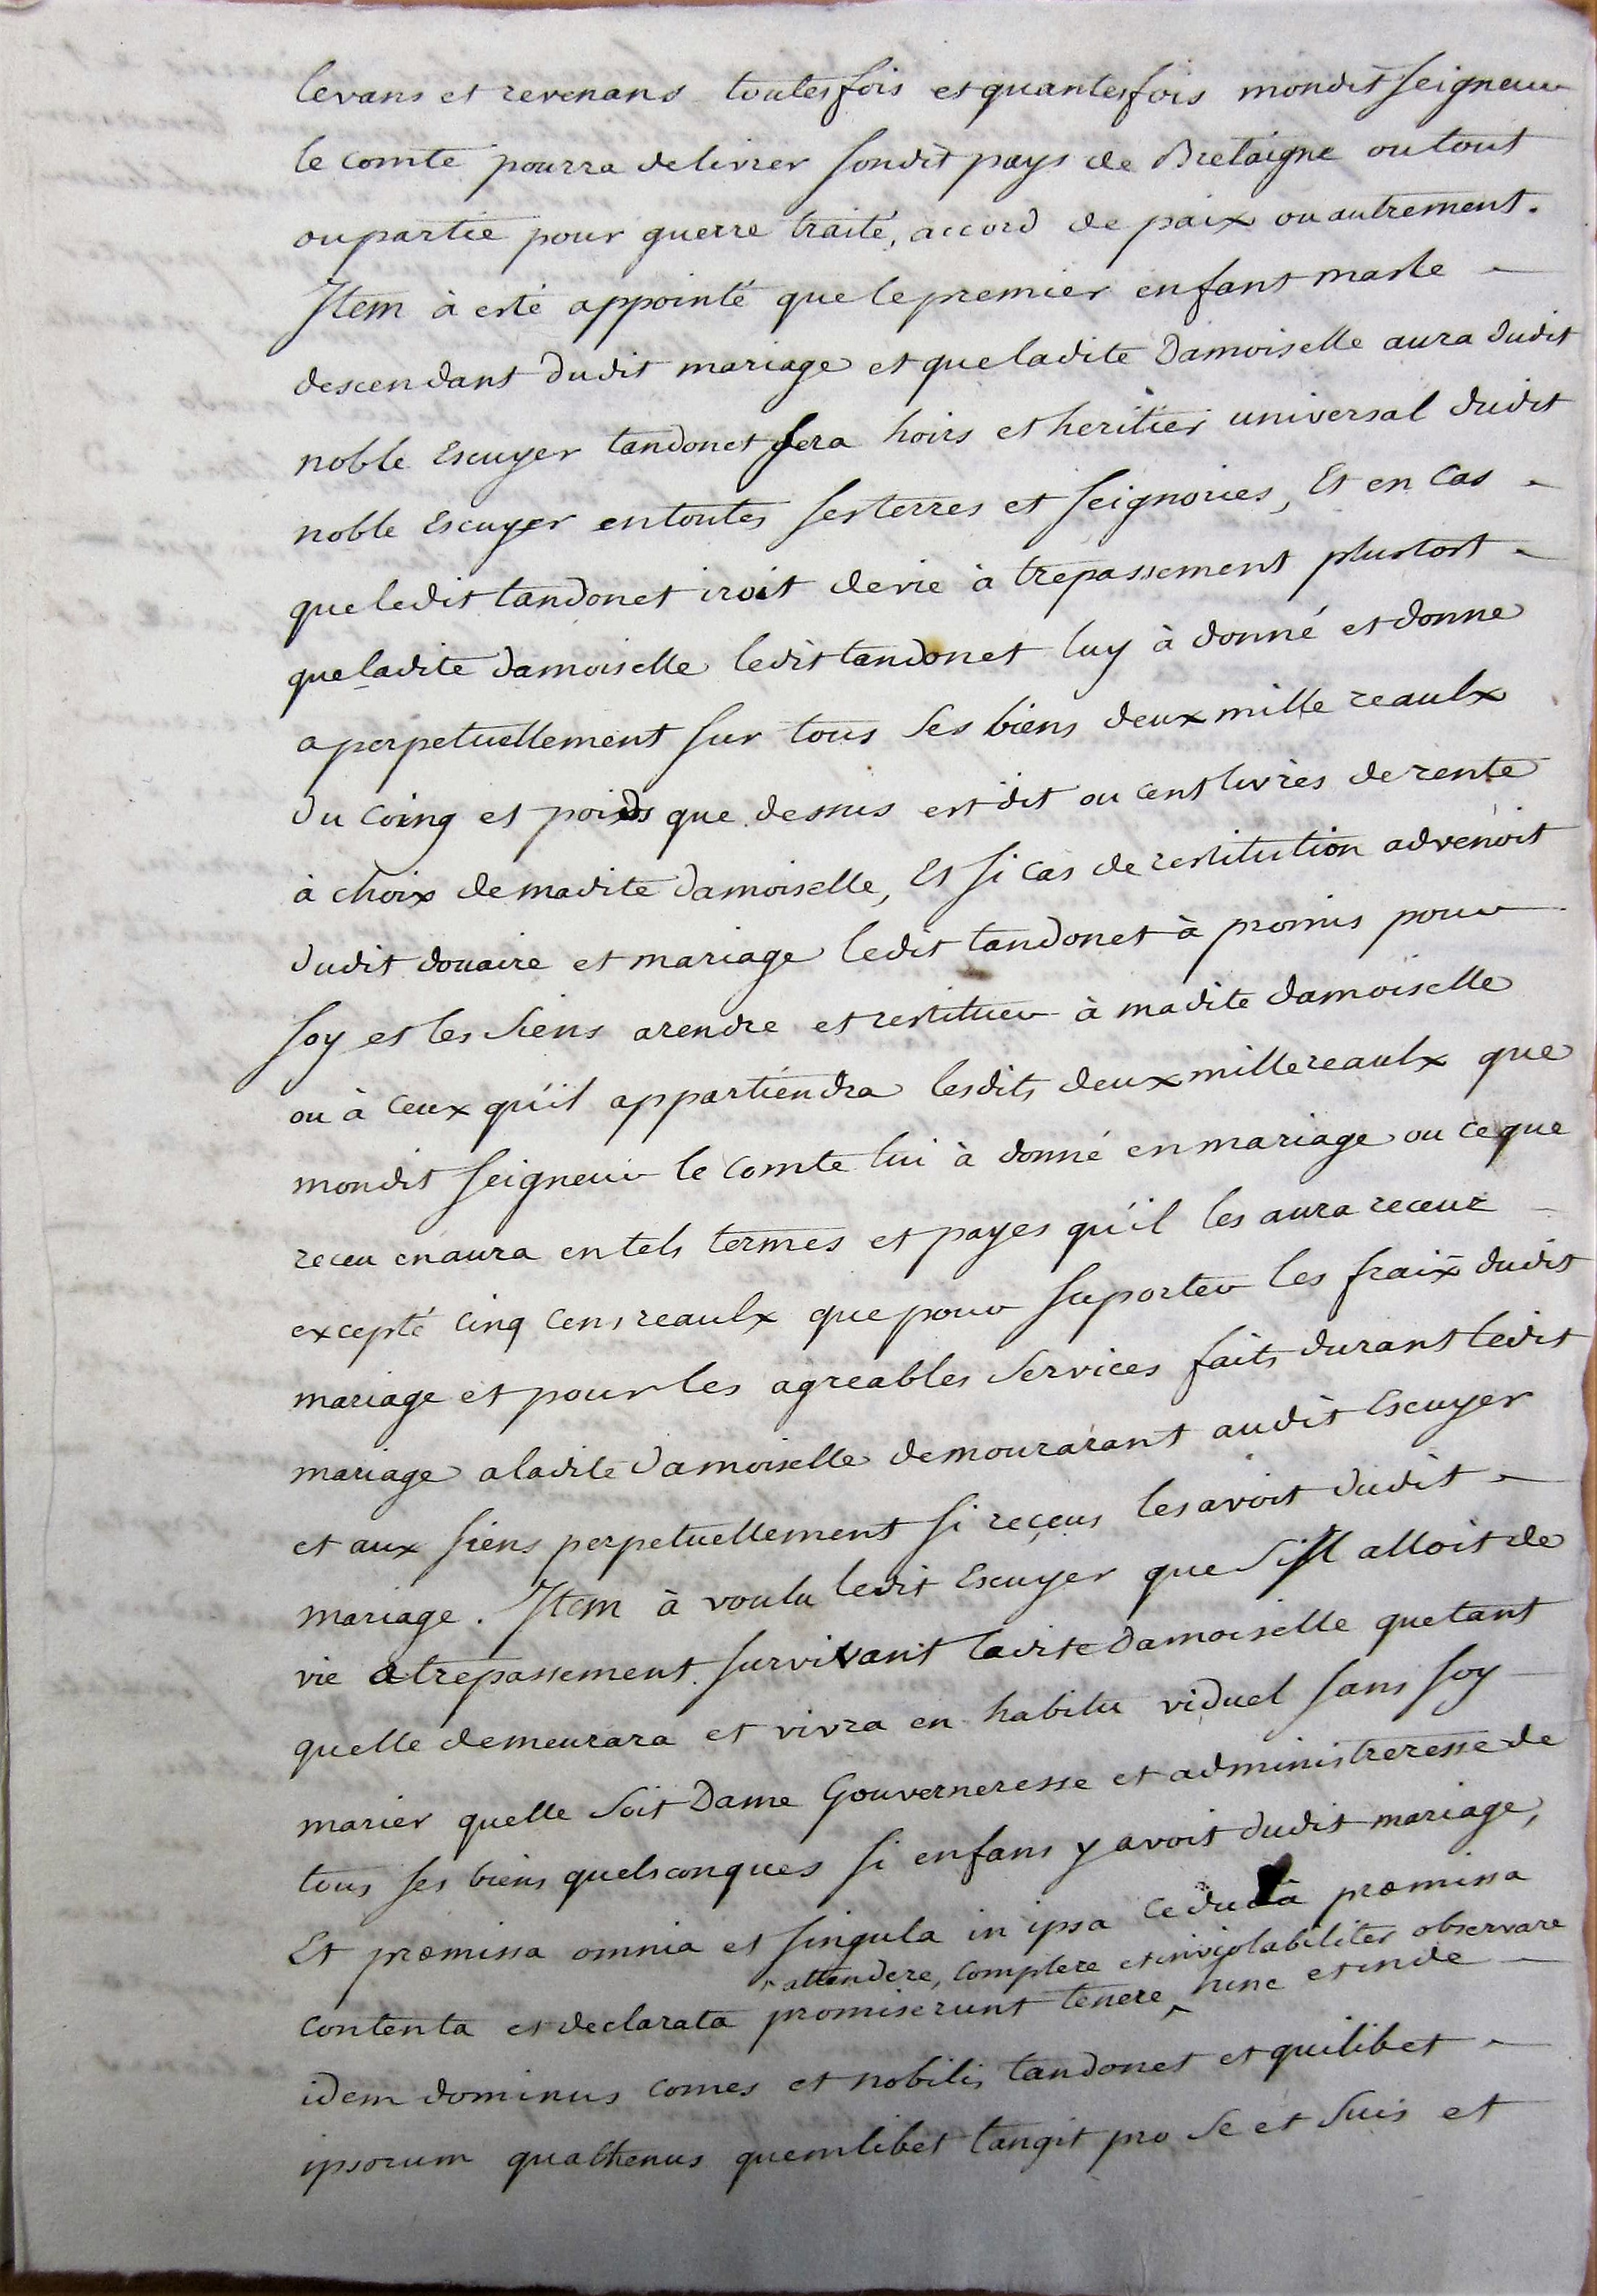 levans et revenans toutesfois et quantesfois mondit seigneur
le comte pourra delivrer sondit pays de Bretaigne ou tout
ou partie pour guerre traité, accord de paix ou autrement.
Item à esté appointé que le premier enfant masle
descendant dudit mariage et que ladite Damoiselle aura dudit
noble Escuyer tandonet sera hoirs et heritier universal dudit
noble Escuyer en toutes ses terres et seignories, Et en cas
que ledit tandonet iroit de vie à trepassement plustost
que ladite damoiselle ledit tandonet luy à donné et donne
a perpetuellement sur tous ses biens deux mille reaulx
du coing et poids que dessus est dit ou cent livres de rente
à choix de madite damoiselle, Et si cas de restitution advenoit
dudit douaire et mariage ledit tandonet à promis pour
soy et les siens a rendre et restituer à madite damoiselle
ou à ceux qu'il appartiendra lesdits deux mille reaulx que
mondit seigneur le comte lui à donné en mariage ou ce que
receu en aura en tels termes et payes qu'il les aura receuz
excepté cinq cens reaulx que pour suporter les fraix dudit
mariage et pour les agreables services faits durant ledit
mariage a ladite Damoiselle demourarant audit Escuyer
et aux siens perpetuellement si reçeus les avoit dudit
mariage. Item à voulu ledit Escuyer que s'il alloit de
vie a trepassement survivant ladite Damoiselle que tant
quelle demeurara et vivra en habitu viduel sans soy
marier quelle soit Dame Gouverneresse et administreresse de
tous ses biens quelsconques si enfans y avoit dudit mariage,
Et præmissa omnia et singula in ipsa cedula præmissa
attendere, complere et inviolabiliter observare
contenta et declarata promiserunt tenere ^ hinc et inde
idem dominus comes et nobilis tandonet et quilibet
ipsorum quathenus quemlibet tangit pro se et suis et